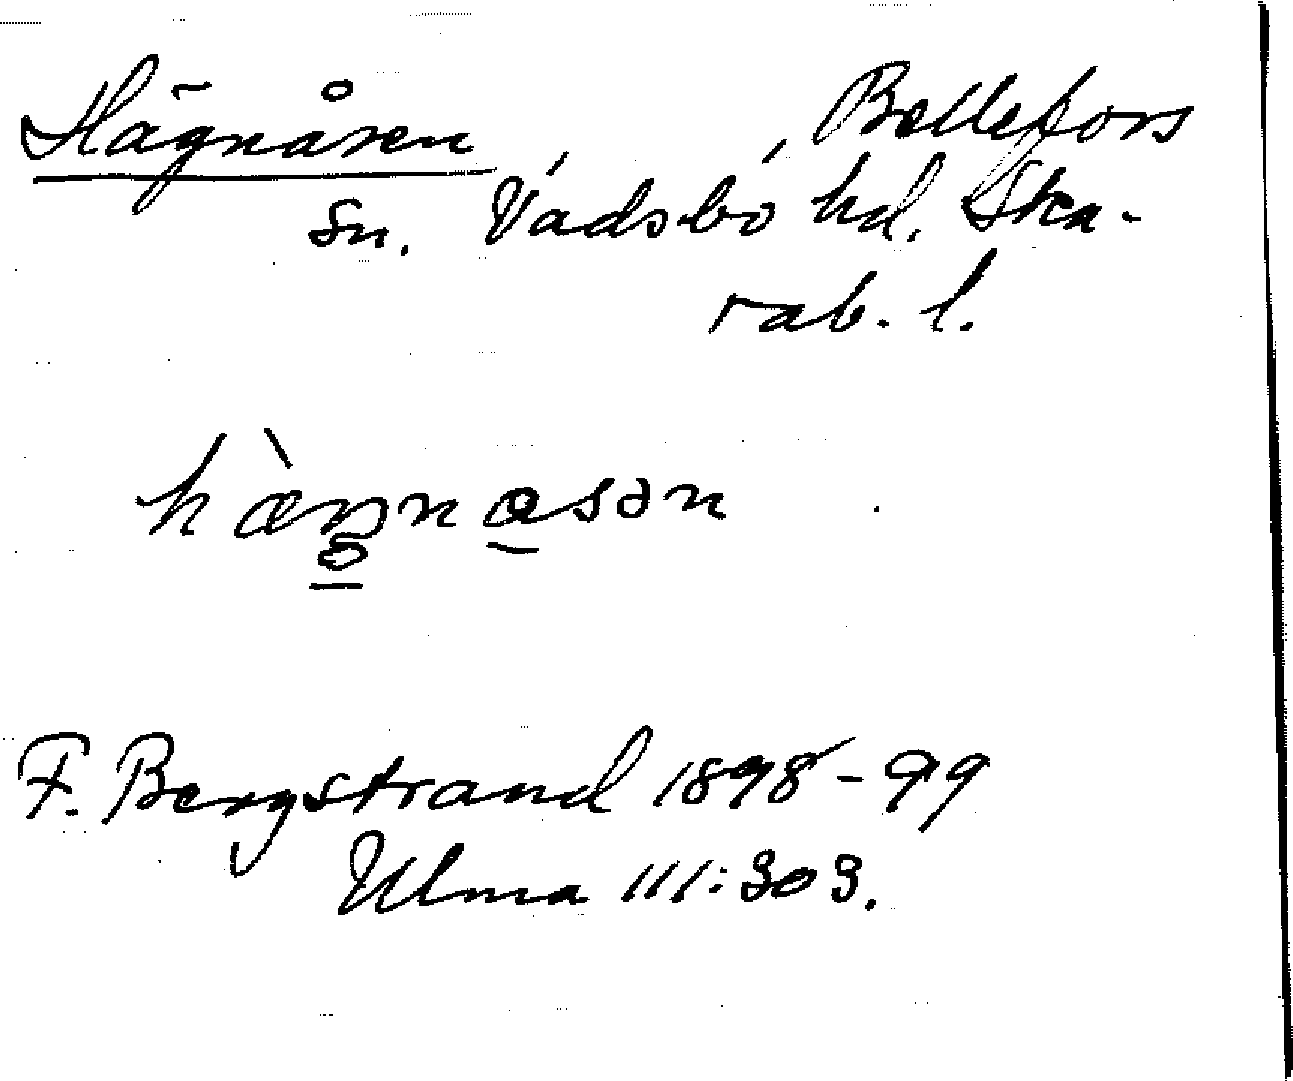 Hägnåsen, Bellefors
sn. Vadsbo hd. Ska-
rab. l.
F. Bergstrand 1898-99
Ulma 111:303.